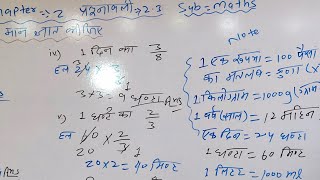 hapter :- 2 प्रश्नावली - 2.3 Sub = Maths
मान ज्ञात कीजिए
iv) 1 दिन का 3/8
हल
3×3 = 9 घण्टा Ans
v) 1 घंटे का 2/3
हल 60 × 2/3
20 1
20×2 = 40 मिनट
Note
1 एक रूपया = 100 पैसा
का मतलब = गुणा (×
1 किलोग्राम = 1000g (ग्राम
1 वर्ष (साल) = 12 महिन
एक दिन = 24 घण्ट
1 घण्टा = 60 मिनट
1 मिटर = 1000 ml